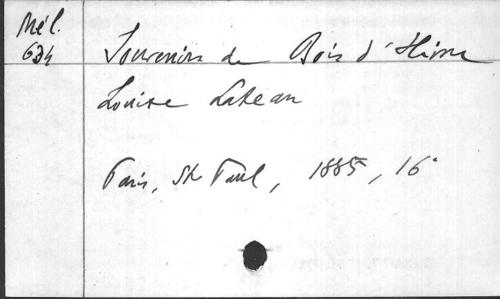 Mél.
634
Souvenirs du Bois d'Haine
Louise Lateau
Paris, St Paul, 1885, 16°